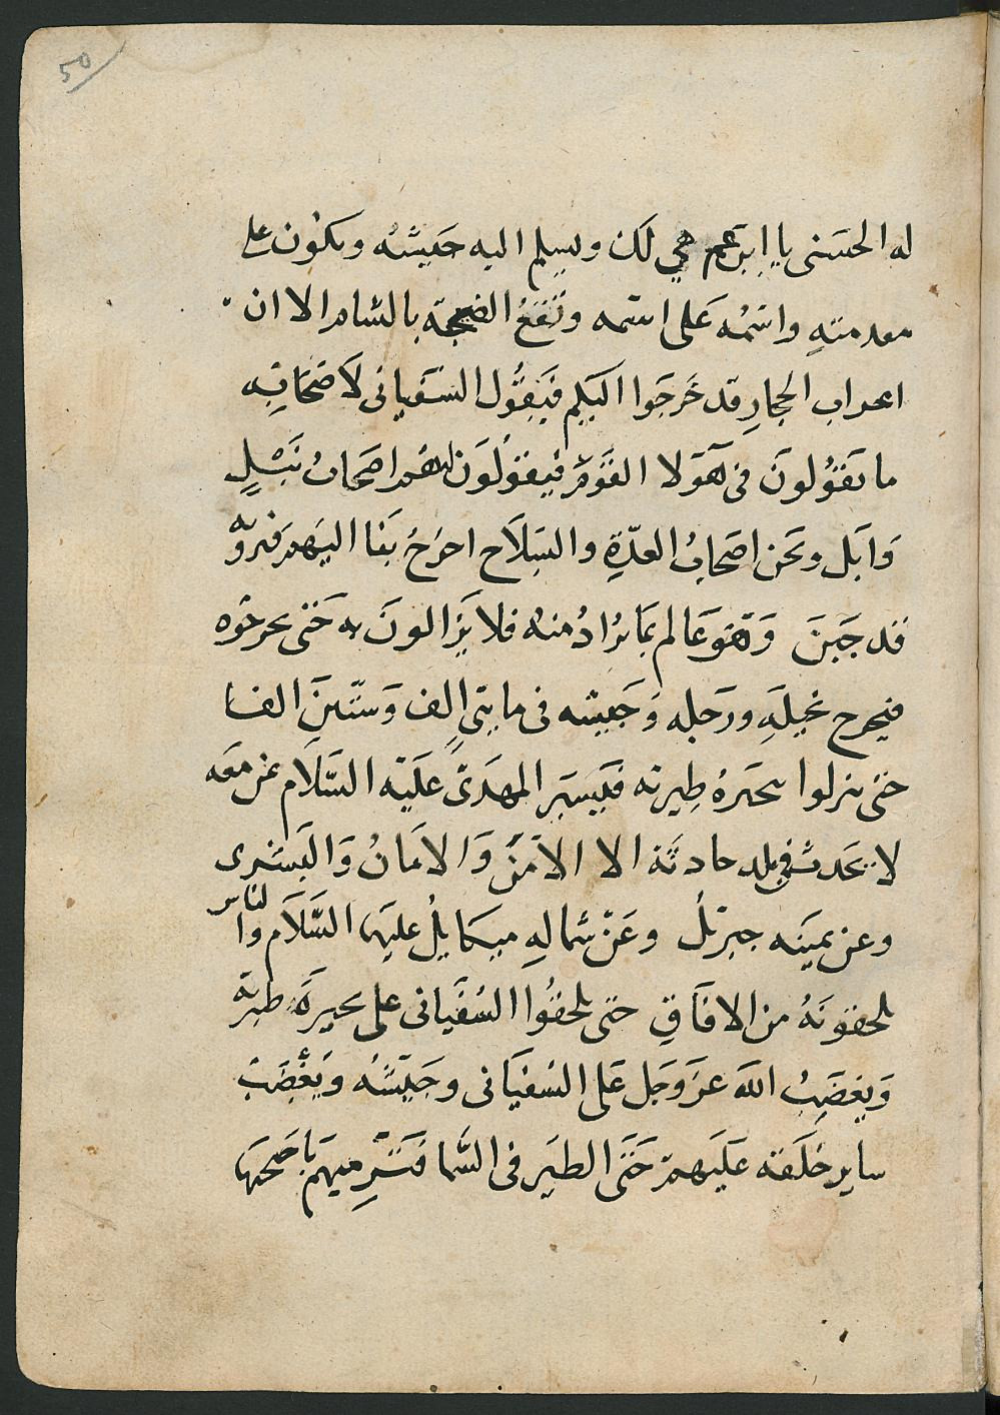 50
له الحسنى يا ابن عم هي لكن ويسلم اليه جيشه ويكون على
مقدمته واسمُه عَلى اسمه وتقعُ الضجة بالشام الا ان
اعراب الحجازِ قد خَرجَوا اليكم فيَقُول السفيانى لاَصحَابِه
ما تقولونَ فى هَولا القَومِ فيقولُونَ هُم اصحَابُ نَبْلٍ
وَابَل ونحن اصحَابُ العدّةِ والسّلاَح اخرُج بَنا اليَهم فيروّه
قد جَبنَ وَهوَ عَالم بما يُرَادُ منه فلا يَزالونَ به حَتى يخرجُوه
فيخرج بخيلَهِ ورَجله وَجَيشه فى مايتى الفٍ وَستّينَ الفا
حتى ينزلوا بحيرة طبريه فيَسِير المهدىّ عليَه السّلاَم بمن معَه
لا يحَدث فى بلد حادثَة الا الاَمنُ وَالاَمَانُ وَالبَشرى
وعن يمينه جبرئلُ وعَن شمالهِ ميكايلُ عليهما السّلاَم والناس
يلحقونَهُ من الافَاقِ حتى يلحقُوا السُفيانى على بحيرَة طبرية
وَيغضَبُ الله عزَ وَجَل عَلى السُفيَانى وجَيشُه ويَغضَبُ
ساير خلقَه عَليَهم حَتى الطيَر فى السّما فَترميهَم باجنحتها